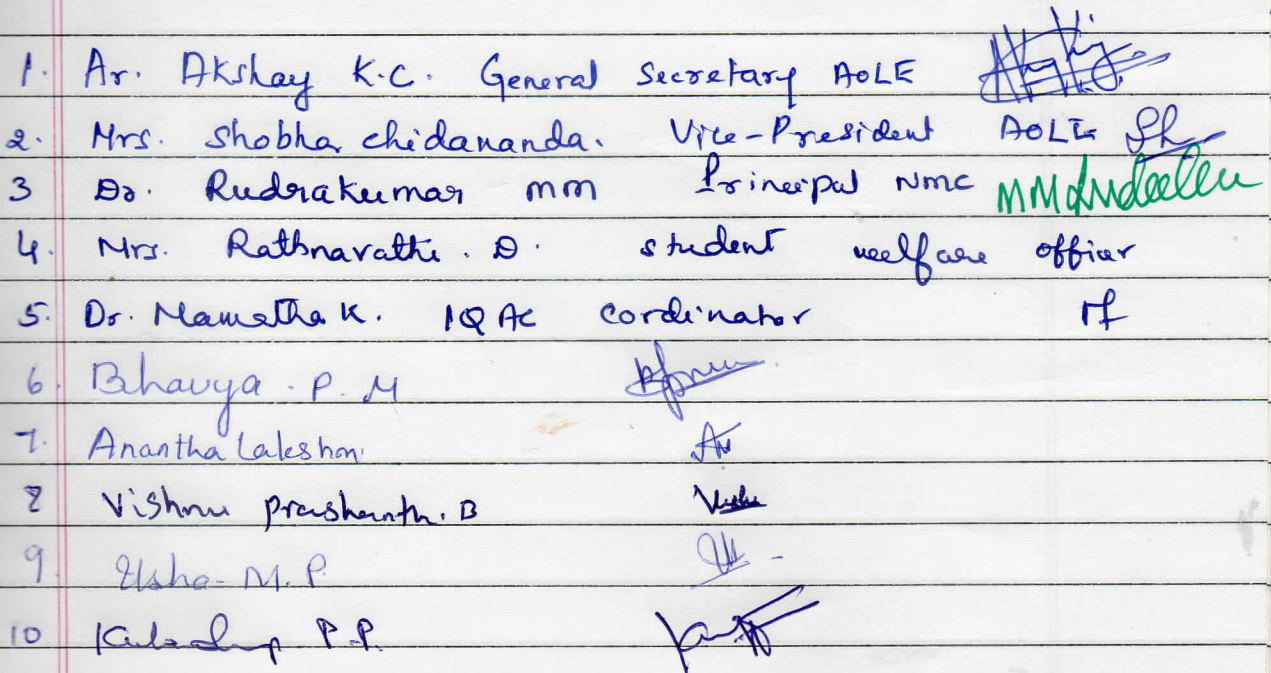 1. Ar. Akshay K.C. General Secretary AOLE
2. Mrs. Shobha chidananda. Vice-President AOLE
3 Dr. Rudrakumar MM Principal NMC
4. Mrs. Rathnavathi. D. student welfare officer
5. Dr. Mamatha K. IQAC cordinator
6. Bhavya. P. M
7. Anantha Lakshmi
8 Vishnu prashanth. B
9. Usha- M. P.
10 P.P.